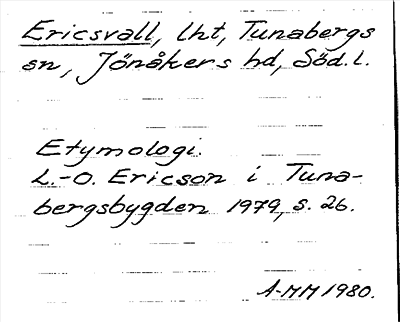 Ericsvall, lht, Tunabergs
sn, Jönåkers hd, Söd.l.
Etymologi.
L.-O. Ericson i Tuna-
bergsbygden 1979, s. 26.
A-MM 1980.